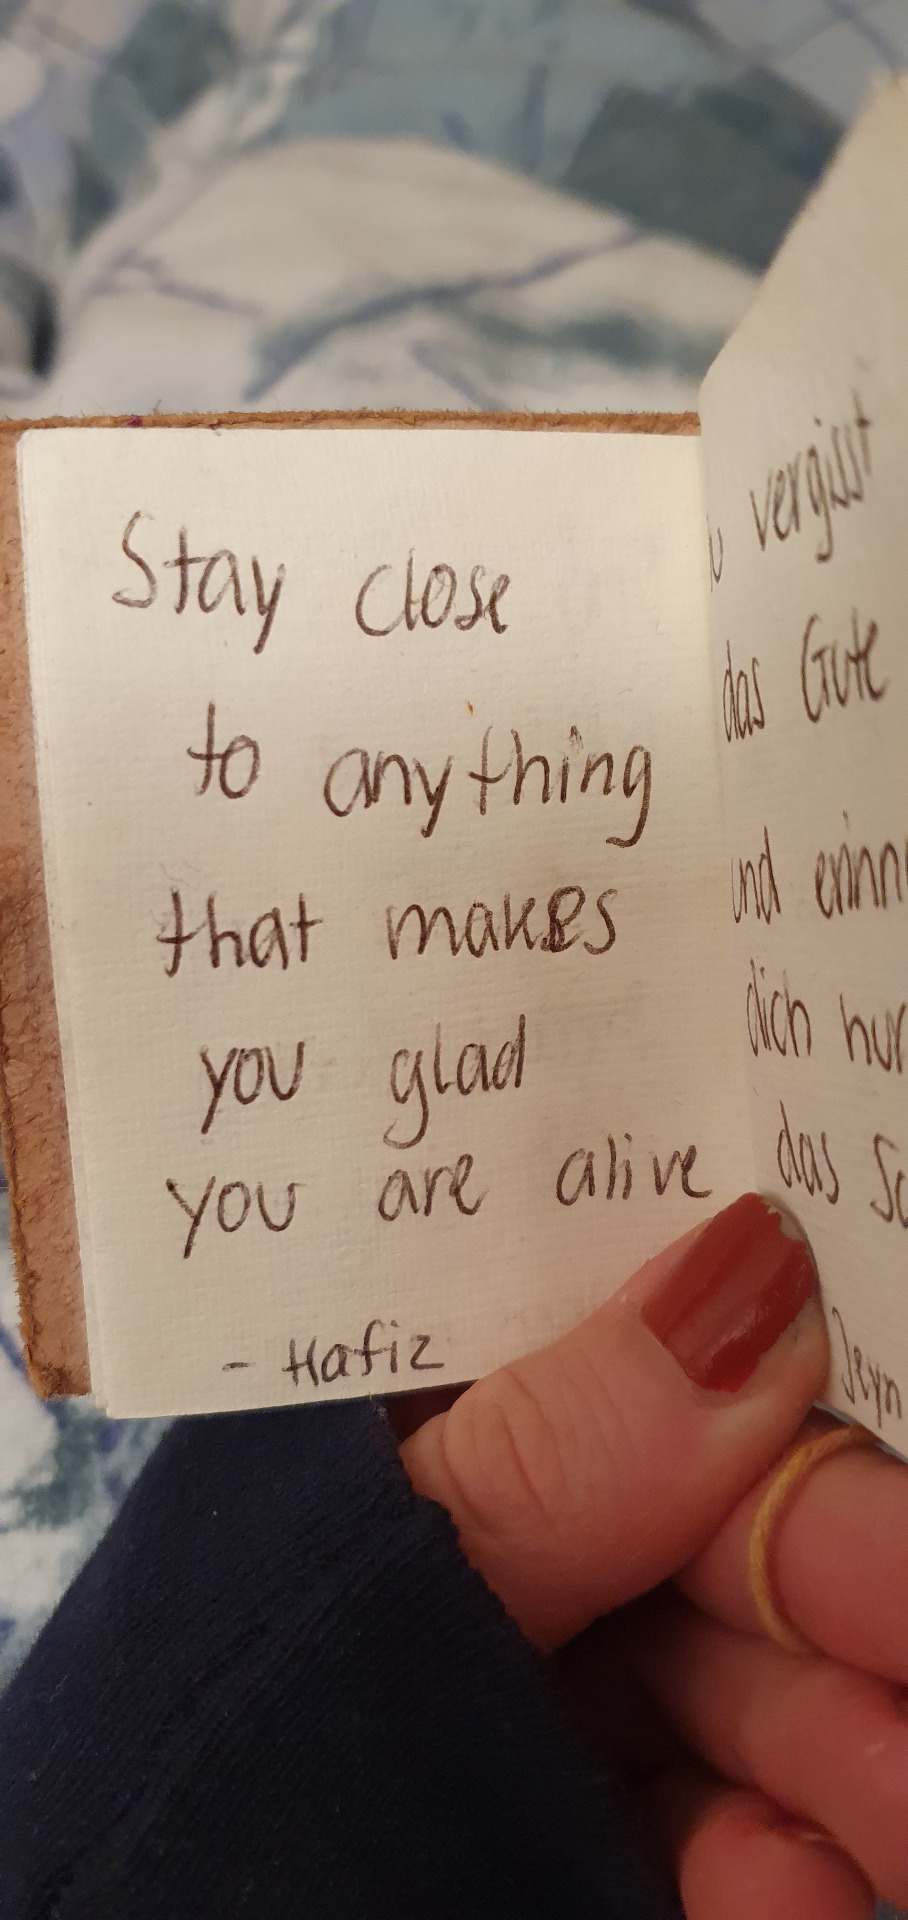 Stay close
to anything
that makes
you glad
you are alive
- Hafiz
vergisst
das Gute
und
dich nur
das